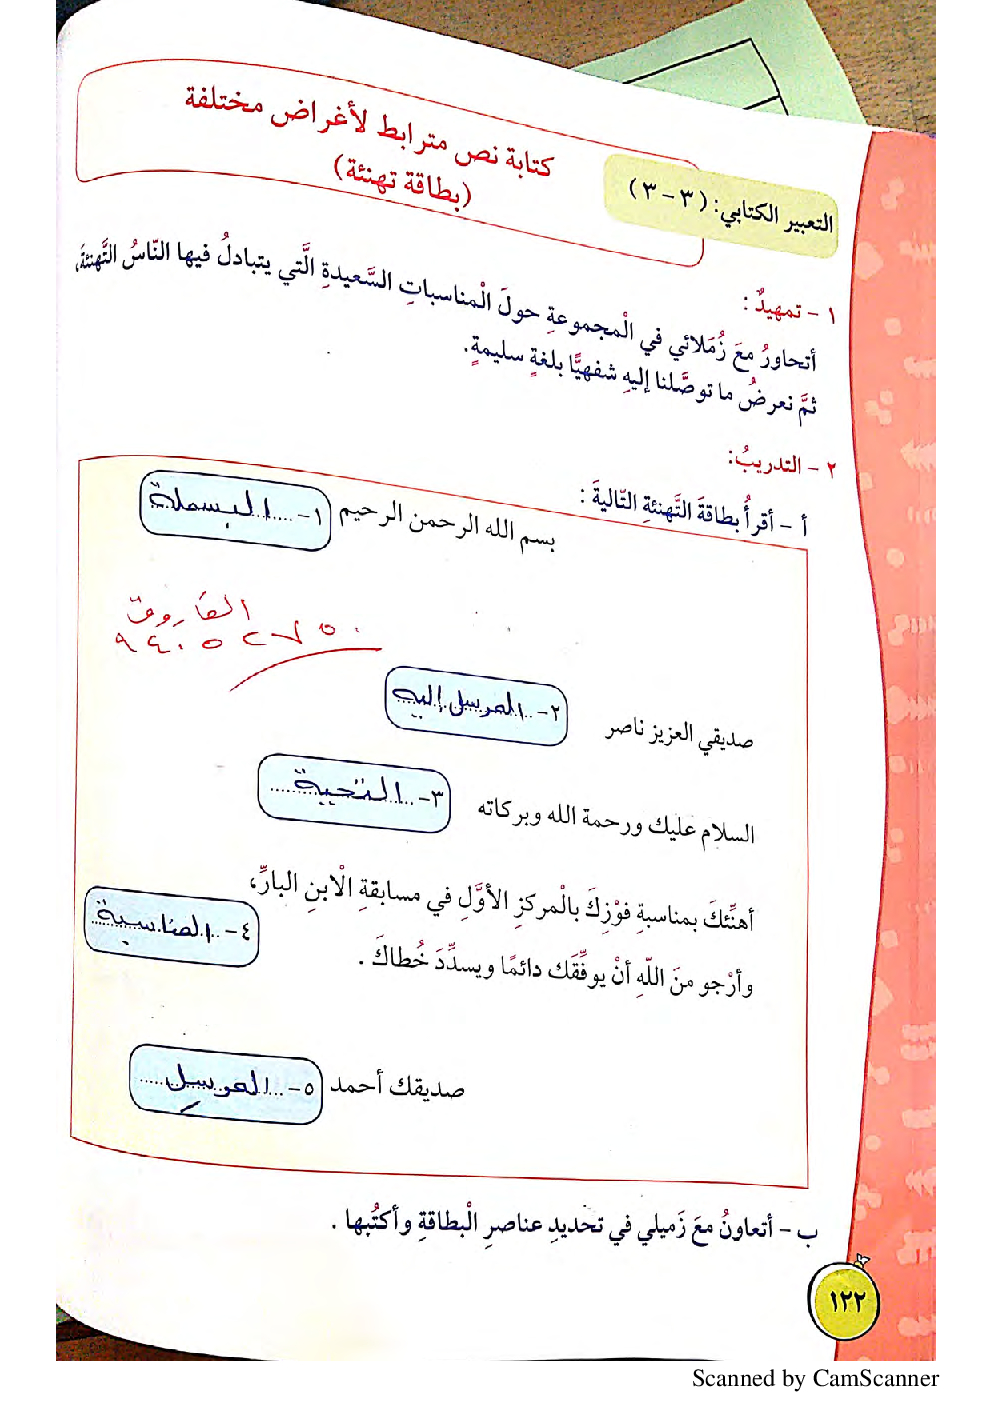 كتابة نص مترابط لأغراض مختلفة
(بطاقة تهنئة)
التعبير الكتابي: (٣ - ٣)
١ - تمهيدٌ:
أتحاورُ معَ زُمَلائي في الْمجموعةِ حولَ الْمناسباتِ السَّعيدةِ الَّتي يتبادلُ فيها النّاسُ التَّهنئةَ،
ثمَّ نعرضُ ما توصَّلنا إليهِ شفهيًّا بلغةٍ سليمةٍ.
٢ - التدريبُ:
أ - أقرأُ بطاقةَ التَّهنئةِ التّاليةَ:
بسم الله الرحمن الرحيم ١-.....البسملة
الفاروق
٩٤٠٥٢٧٥٠
صديقي العزيز ناصر ٢-..المرسل إليه
السلام عليك ورحمة الله وبركاته ٣-..التحية.......
أهنِّئكَ بمناسبةِ فوْزِكَ بالْمركزِ الأوَّلِ في مسابقةِ الْابنِ البارِّ،
٤-..المناسبة
وأرْجو منَ اللّهِ أنْ يوفِّقَك دائمًا ويسدِّدَ خُطاكَ.
صديقك أحمد ٥-....المرسل.....
ب - أتعاونُ معَ زَميلي في تحْديدِ عناصرِ الْبطاقةِ وأكتُبها.
١٢٢
Scanned by CamScanner